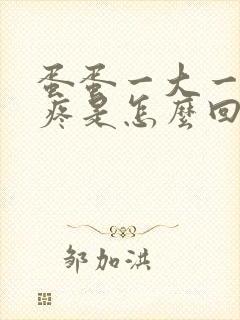 蛋蛋一大一
疼是怎麼回
邹加洪